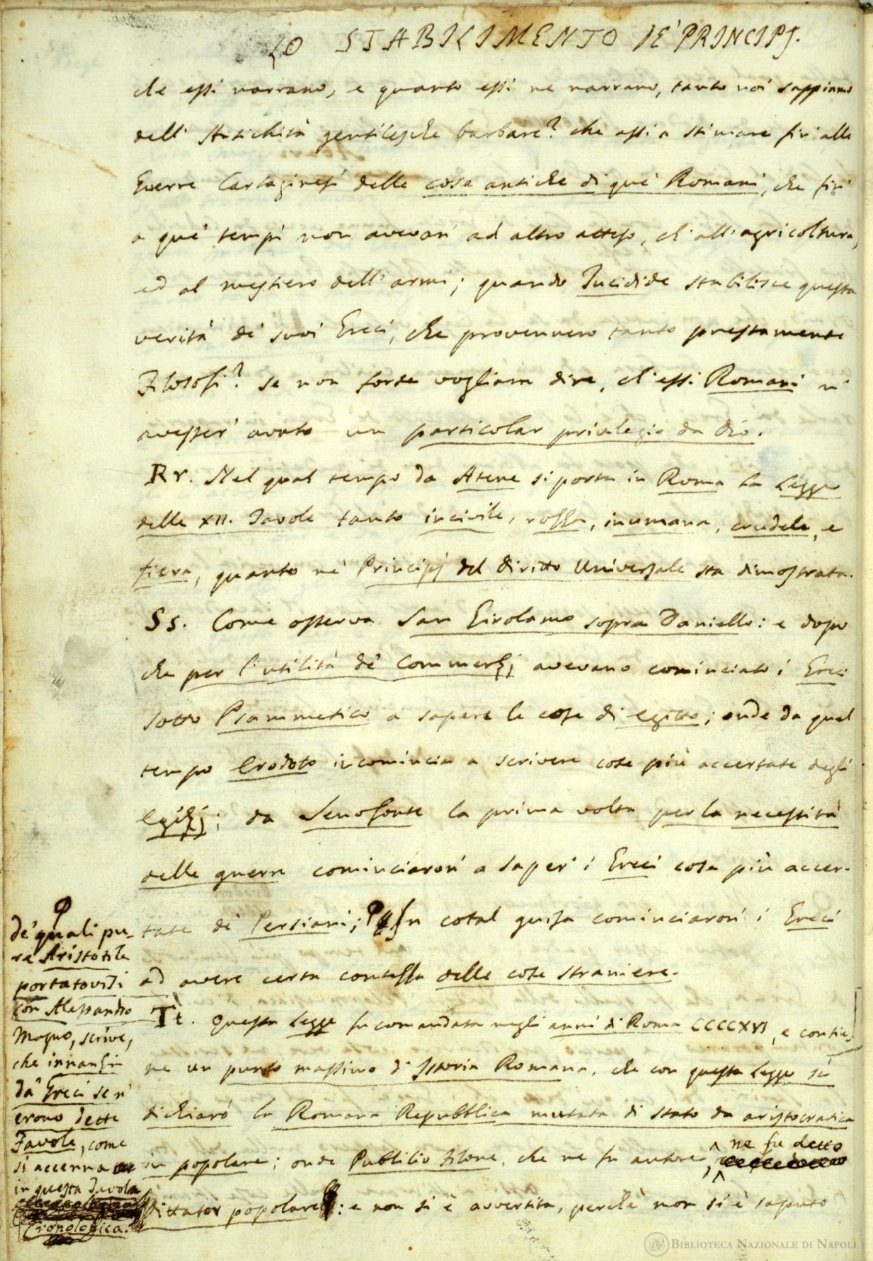 20 STABILIMENTO DE' PRINCIPJ.
che essi narrano, e quanto essi ne narrano, tanto noi sappiamo
dell' Antichità gentilesche barbare? che assi a stimare fin' alle
Guerre Cartaginesi delle cose antiche di que' Romani, che fin'
a que' tempi non avevan' ad altro atteso, ch' all' agricoltura,
ed al mestiero dell' armi; quando Tucidide stabilisce questa
verità de' suoi Greci, che provennero tanto prestamente
Filosofi? se non forse vogliam dire, ch' essi Romani n'
avesser' avuto un particolar privilegio da Dio.
Rr. Nel qual tempo da Atene si porta in Roma la Legge
delle XII. Tavole tanto incivile, rozza, inumana, crudele, e
fiera, quanto ne' Principj del diritto Universale sta dimostrata.
Ss. Come osserva San Girolamo sopra Daniello: e dopo
che per l' utilità de' Commerzj avevano cominciato i Greci
sotto Psammetico a sapere le cose di Egitto; onde da quel
tempo Erodoto incomincia a scrivere cose più accertate degli
Egizj; da Senofonte la prima volta per la necessità
delle guerre cominciaron' a saper' i Greci cose più accer-
tate de' Persiani; In cotal guisa cominciaron' i Greci
ad avere certa contezza delle cose straniere.
Tt. Questa Legge fu comandata negli anni di Roma CCCCXVI, e contie-
ne un punto massimo d' Istoria Romana, che con questa Legge si
dichiarò la Romana Repubblica mutata di stato da aristocratica
in popolare; onde Pubblio Filone, che ne fu autore, ne fu detto
Dittator popolare: e non si è avvertita, perchè non si è saputo
de' quali pu-
re Aristotile
portatovisi
con Alessandro
Magno, scrive,
che innanzi
da' Greci se n'
erano dette
Favole, come
si accenna
in questa Tavola
Cronologica.
BIBLIOTECA NAZIONALE DI NAPOLI